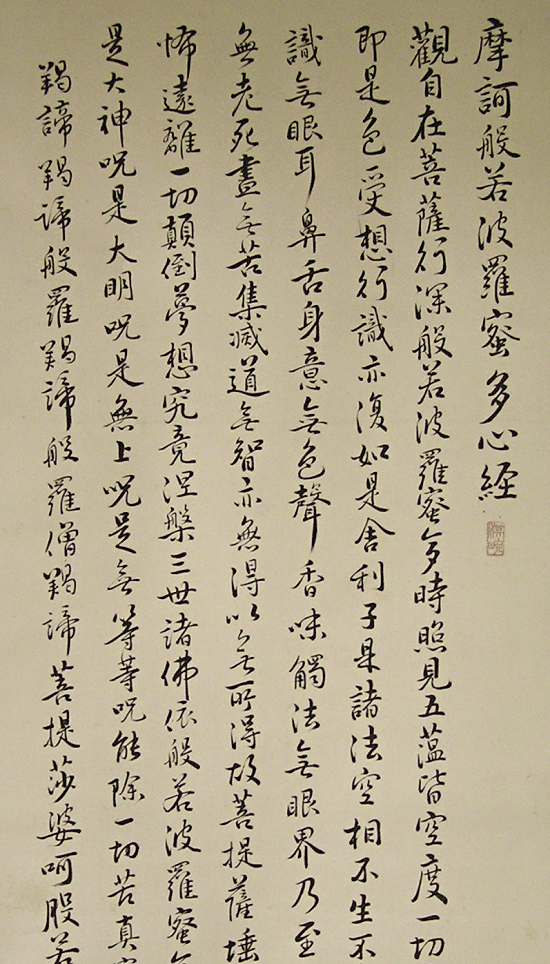 摩訶般若波羅蜜多心經
觀自在菩薩行深般若波羅蜜多時照見五蘊皆空度一切
即是色受想行識亦復如是舍利子是諸法空相不生不
識無眼耳鼻舌身意無色聲香味觸法無眼界乃至
無老死盡無苦集滅道無智亦無得以無所得故菩提薩埵
怖遠離一切顛倒夢想究竟涅槃三世諸佛依般若波羅蜜
是大神呪是大明呪是無上呪是無等等呪能除一切苦真
羯諦羯諦般羅羯諦般羅僧羯諦菩提莎婆呵般若